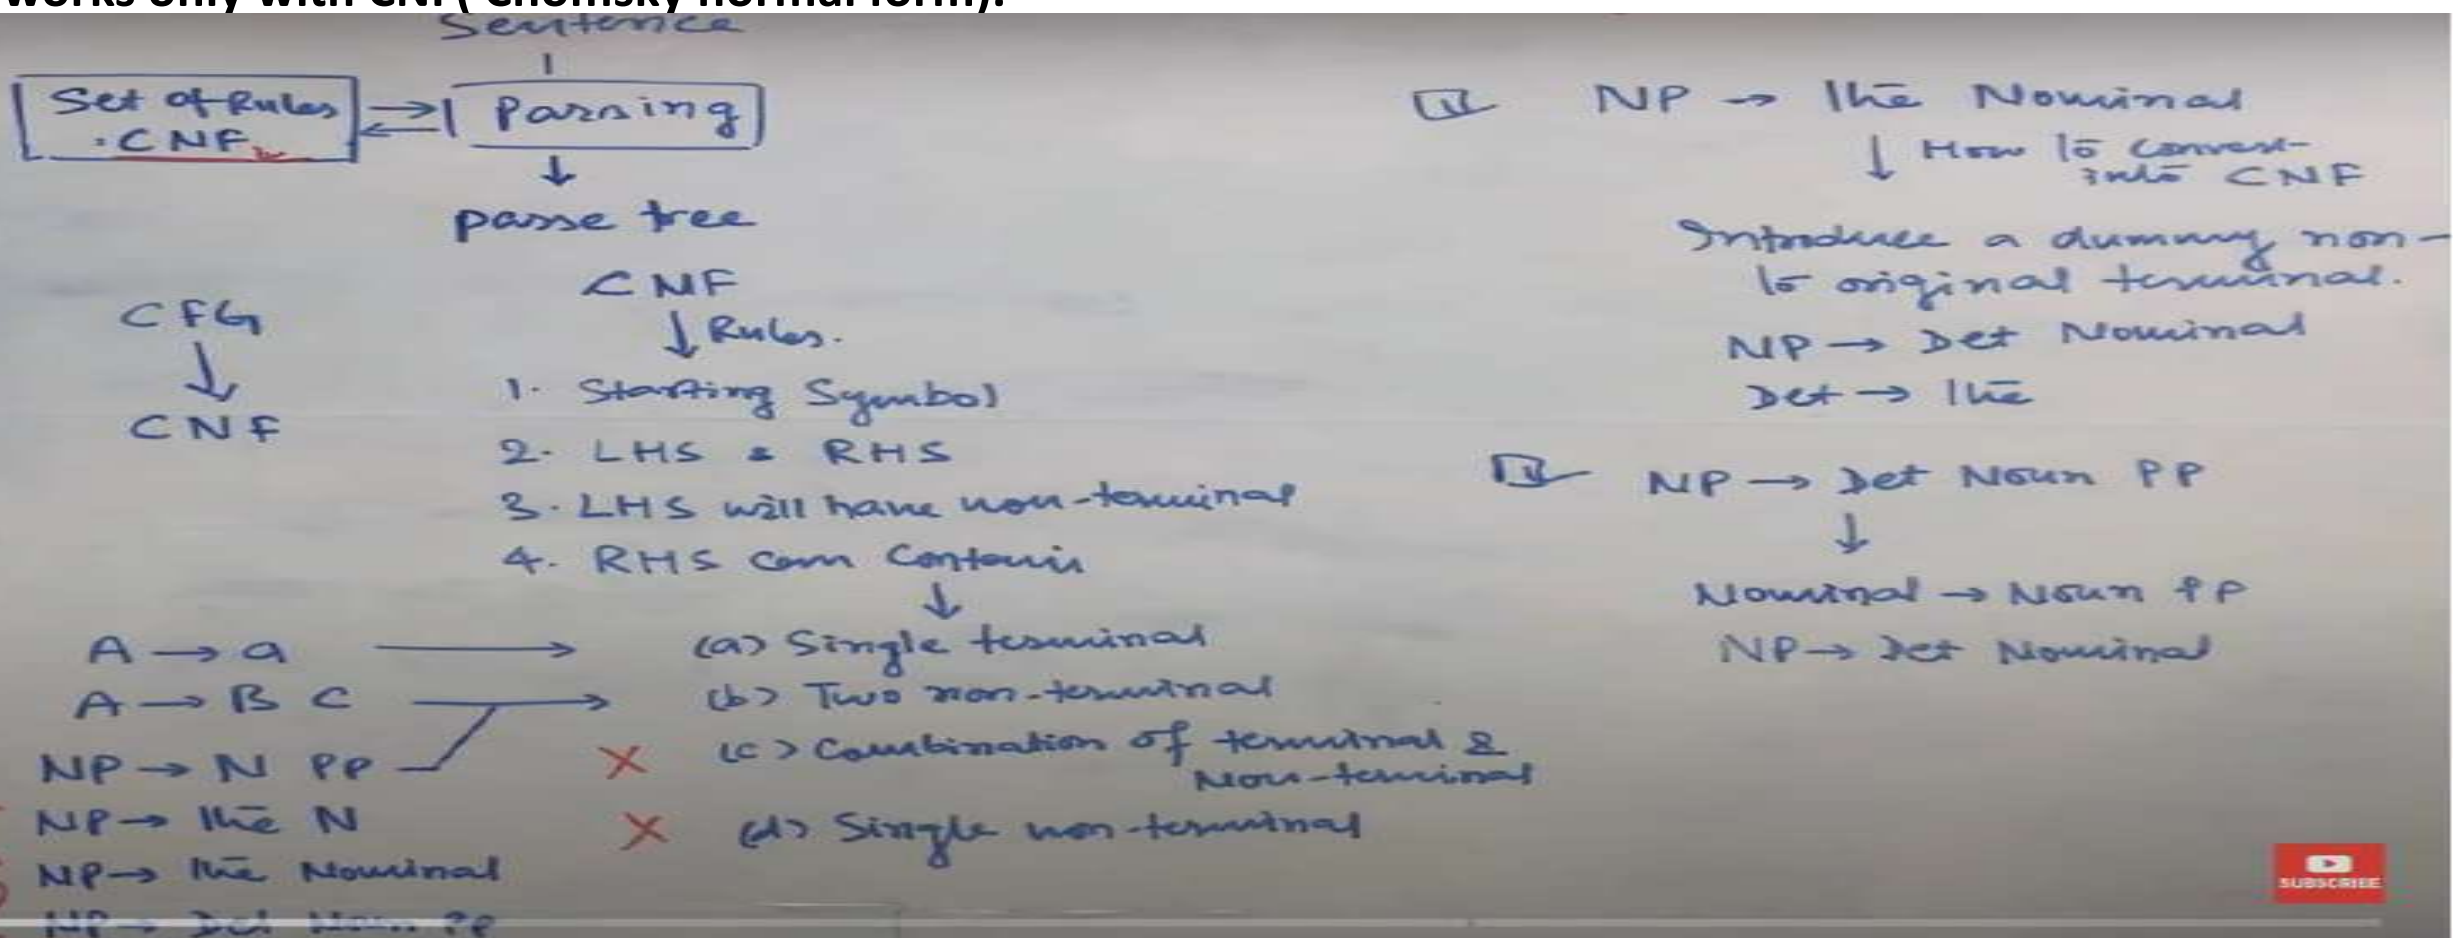 works only with CNF( Chomsky normal form).
Sentence
Set of Rules
.CNF
Parsing
parse tree
CFG
CNF
CNF
Rules.
1. Starting Symbol
2. LHS & RHS
3. LHS will have non-terminal
4. RHS can Contain
A → a
(a) Single terminal
A → B C
(b) Two non-terminal
NP → N PP
(c) Combination of terminal &
Non-terminal
NP → the N
(d) Single non-terminal
NP → the Nominal
NP → Det Noun PP
NP → the Nominal
How to convert
into CNF
Introduce a dummy non-
to original terminal.
NP → Det Nominal
Det → the
NP → Det Noun PP
Nominal → Noun PP
NP → Det Nominal
SUBSCRIBE